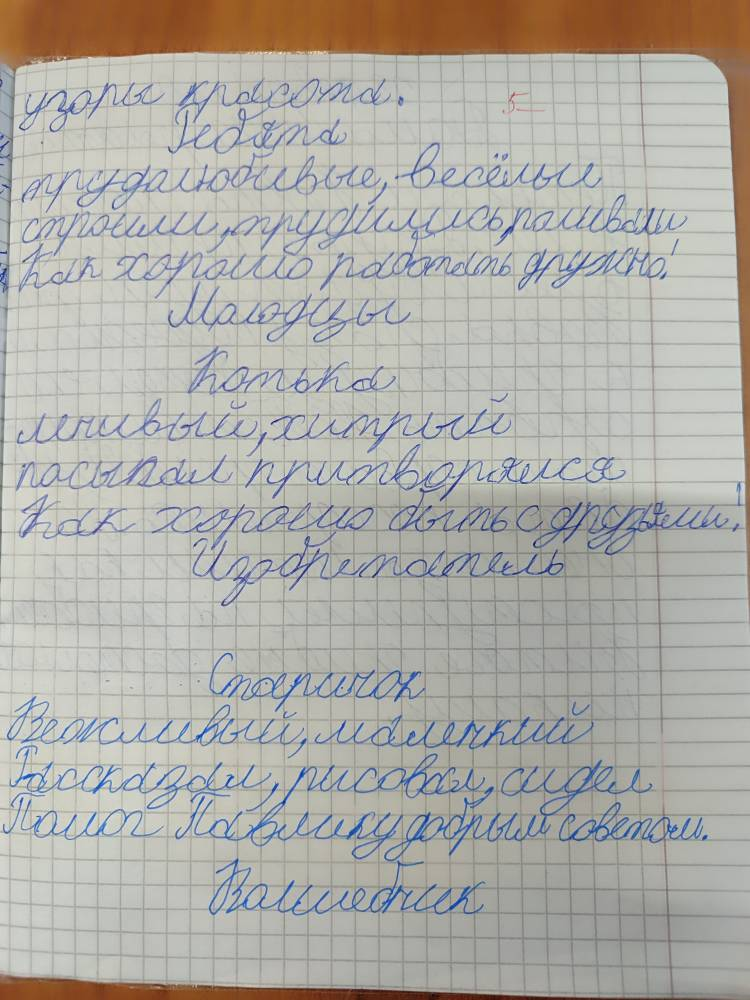 узоры красота. 5
Ребята
трудалюбивые, весёлые
строили, трудились, паливали
Как хорошо работать дружно!
Малодцы
Котька
ленивый, хитрый
пасыпал притворялся
Как хорошо быть с друзьями!
Изобретатель
Старичок
Вежливый, маленкий
Рассказал, рисовал, сидел
Помог Павлику добрым советом.
Валшебник